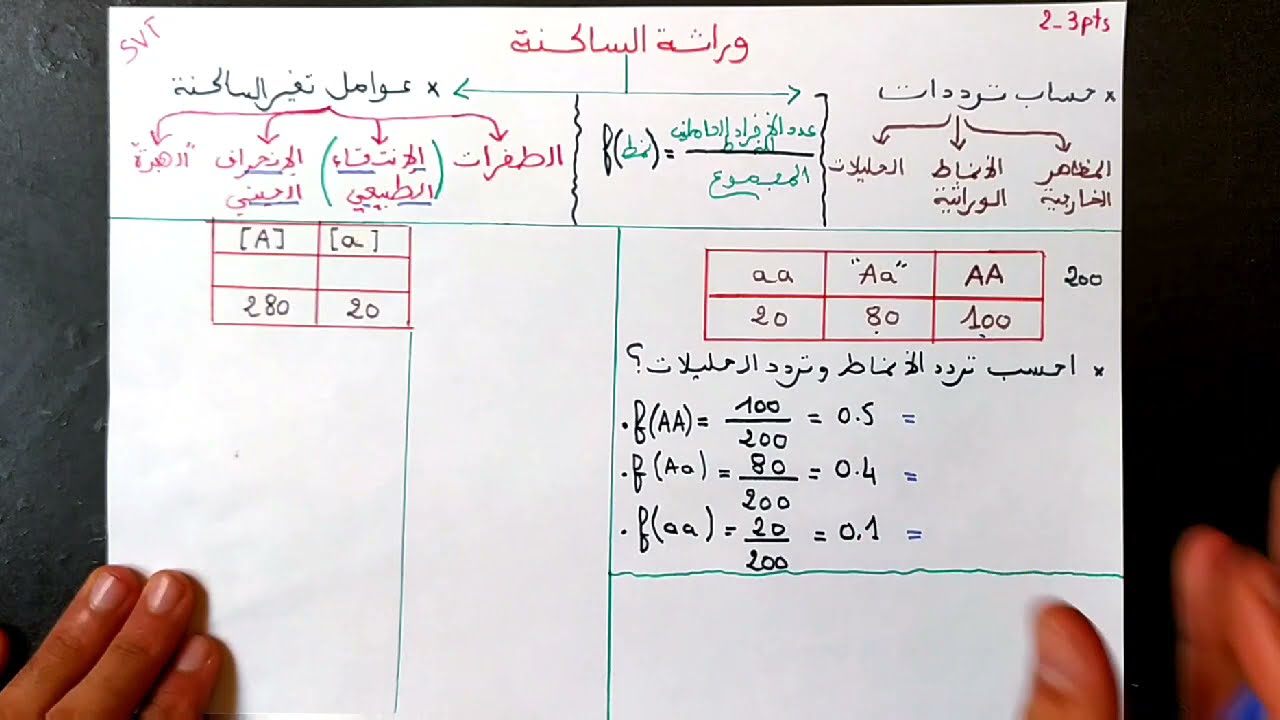 SVT
2_3pts
وراثة الساكنة
× حساب ترددات
× عوامل تغير الساكنة
المظاهر الخارجية
الأنماط الوراثية
الحليلات
f(نمط) = عدد الأفراد الحاملين للنمط / المجموع
الطفرات
(الإنتقاء الطبيعي)
الإنحراف الجيني
"الهجرة"
aa "Aa" AA
20 80 100
200
× احسب تردد الأنماط وتردد الحليلات ؟
. f(AA) = 100/200 = 0.5 =
. f(Aa) = 80/200 = 0.4 =
. f(aa) = 20/200 = 0.1 =
[A] [a]
280 20